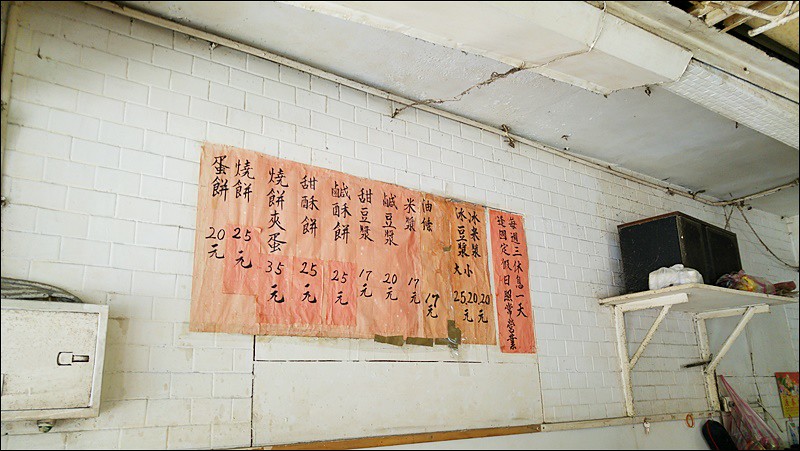 每週三休息一天
逢國定假日照常營業
冰米漿 小 20
冰豆漿 大 25,20元
油條 17元
米漿 17元
鹹豆漿 20元
甜豆漿 17元
鹹酥餅 25元
甜酥餅 25元
燒餅夾蛋 35元
燒餅 25元
蛋餅 20元